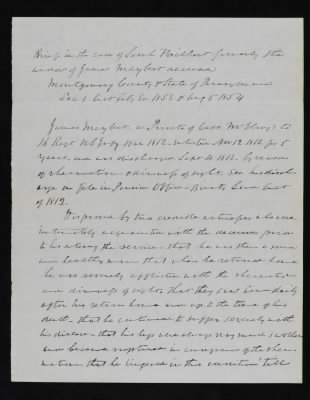 Brief in the case of Sarah Hilbert formerly the
widow of James Maybert deceased
Montgomery County & State of Pennsylvania
Sec 1 Act July 1853 & Aug 5 1854
James Maybert a Private of Capt
16 Regt US Infy War 1812. Nov 12, 1812 for 5
years and was discharged Sept 4, 1815. by reason
of rheumatism & dimness of sight. See his disch
arge on file in Pension Office - Bounty Land act
of 1812.
It is proved by two credible witnesses who were
intimately acquainted with the deceased prior
to his entering the service - that he was then a sound
and healthy man that when he returned home
he was seriously afflicted with the rheumatism
and dimness of sight. That they saw him daily
after his return home and up to the time of his
death - that he continued to suffer seriously with
his disease - that his legs were always very much swollen
and became ruptured in consequence of the rheu-
matism - that he lingered in this condition till